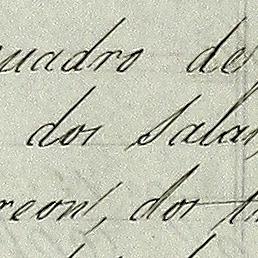 quadro de
dos salar
reon, dos t